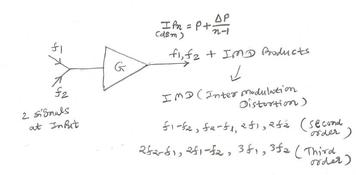 IPn = P + ΔP/n-1
(dBm)
f1
G
f1, f2 + IMD Products
f2
IMD (Intermodulation
Distortion)
2 signals
at Input
f1-f2, f2-f1, 2f1, 2f2 (Second
order)
2f2-f1, 2f1-f2, 3f1, 3f2 (Third
order)